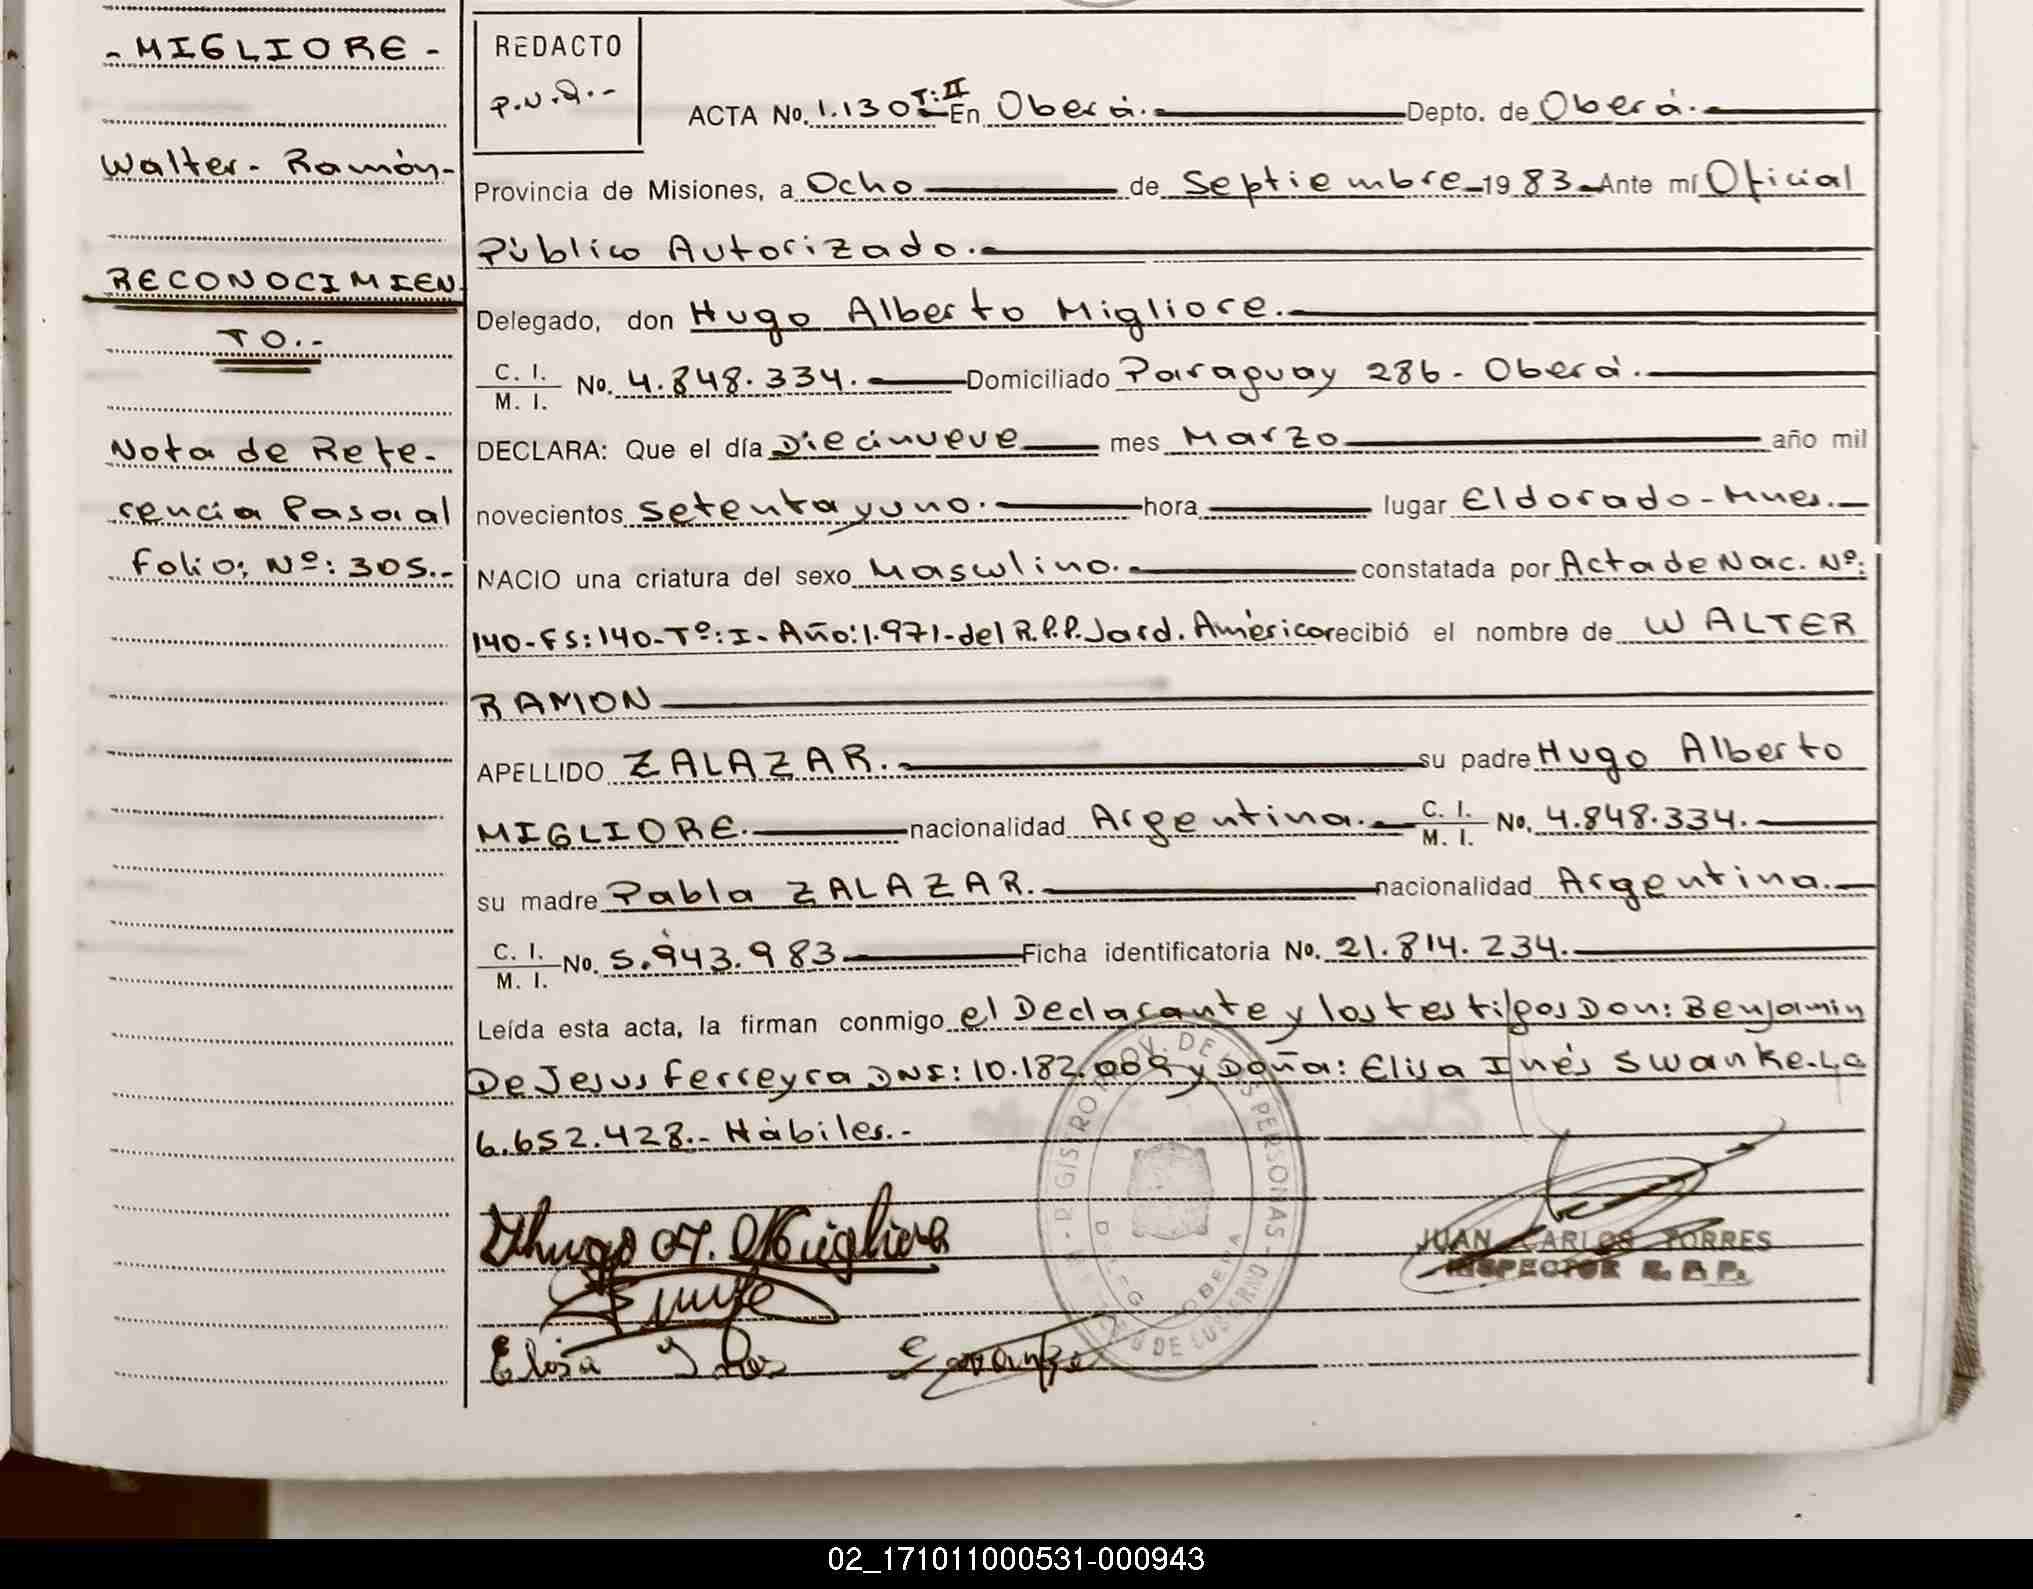 - MIGLIORE -
Walter - Ramón -
RECONOCIMIEN
TO.-
Nota de Refe-
rencia Pasa al
folio: Nº: 305.-
REDACTO
P.N.Q.-
ACTA No. 1.130 T:II En Oberá.- Depto. de Oberá.-
Provincia de Misiones, a Ocho de Septiembre 1983 Ante mí Oficial
Público Autorizado.-
Delegado, don Hugo Alberto Migliore.-
C. I.
M. I. No. 4.848.334.- Domiciliado Paraguay 286 - Oberá.-
DECLARA: Que el día Diecinueve mes Marzo año mil
novecientos setenta y uno.- hora lugar Eldorado - Mnes.-
NACIO una criatura del sexo Masculino.- constatada por Acta de Nac. Nº:
140-FS:140-Tº:I-Año:1.971-del R.P.P. Jard. América recibió el nombre de WALTER
RAMON
APELLIDO ZALAZAR.- su padre Hugo Alberto
MIGLIORE.- nacionalidad Argentina.- C. I.
M. I. No. 4.848.334.-
su madre Pabla ZALAZAR.- nacionalidad Argentina.-
C. I.
M. I. No. 5.943.983 Ficha identificatoria No. 21.814.234.-
Leída esta acta, la firman conmigo el Declarante y los testigos Don: Benjamin
De Jesus Ferreyra DNI: 10.182.009 y Doña: Elisa Inés Swanke. LC
6.652.428.- Hábiles.-
Hugo A. Migliore
Elisa Ines Swanke
JUAN CARLOS TORRES
INSPECTOR R. P. P.
02_171011000531-000943